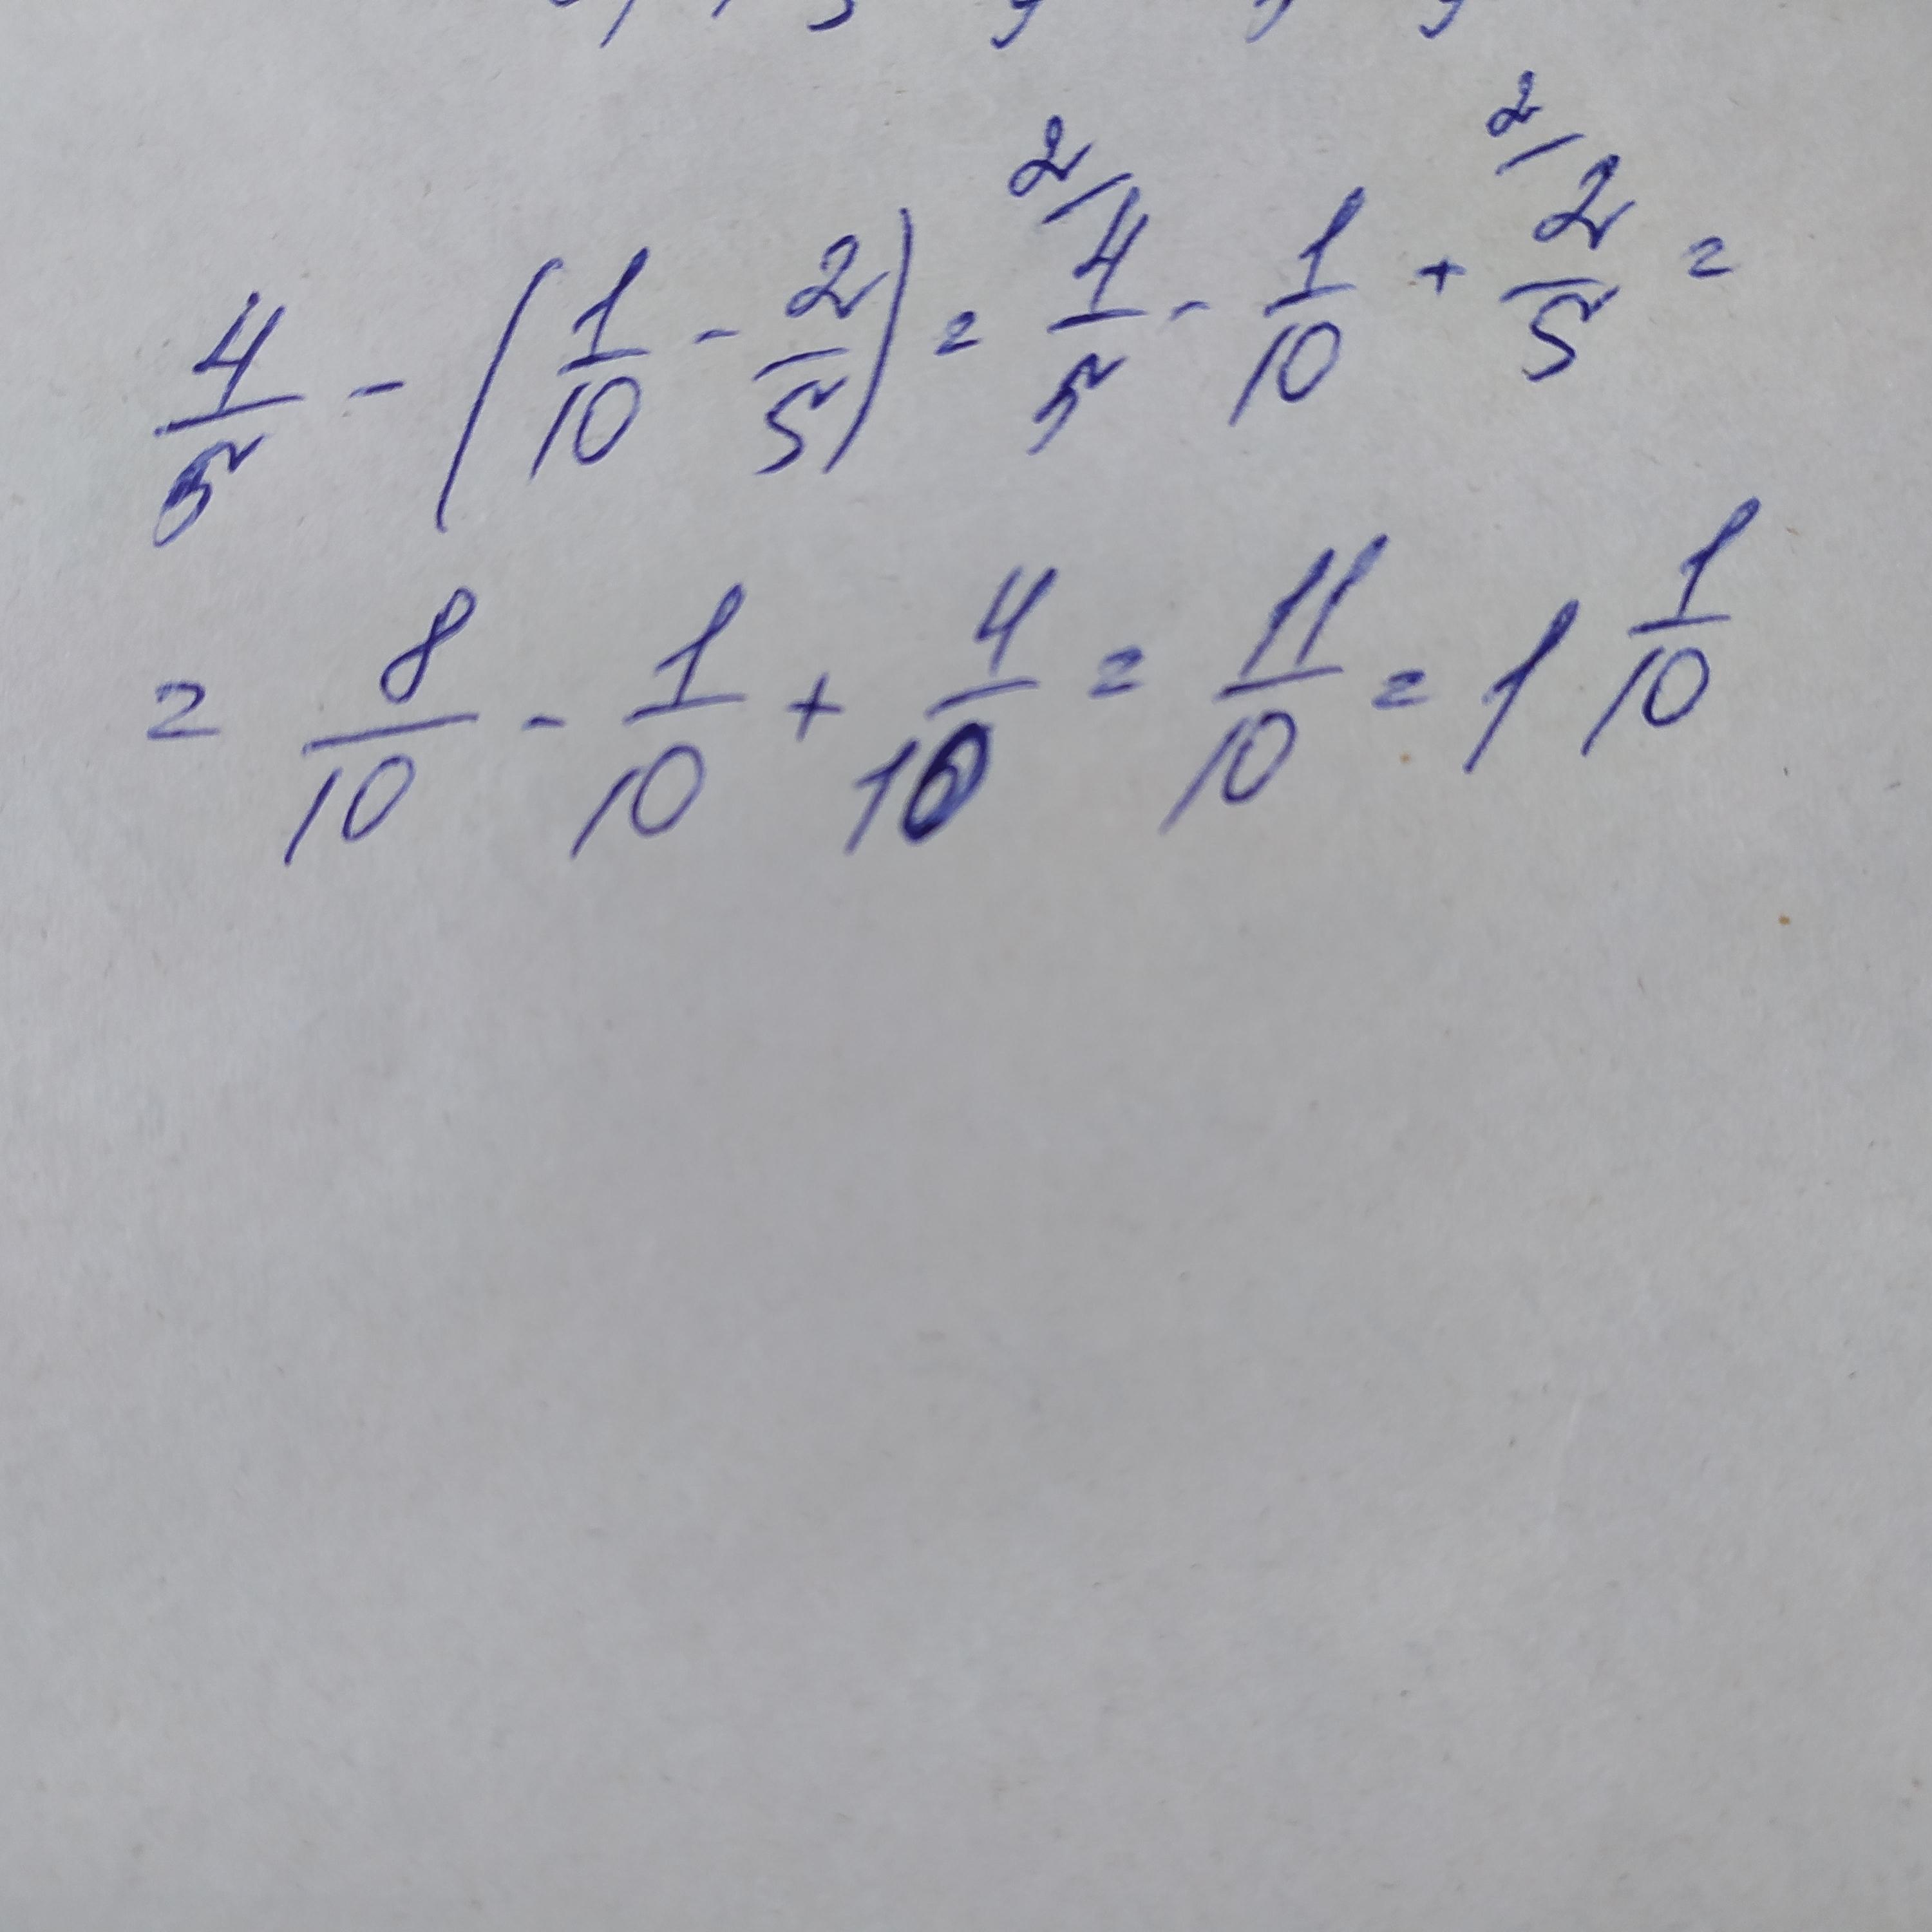 4/5 - (1/10 - 2/5) = 2/ 4/5 - 1/10 + 2/ 2/5 =
= 8/10 - 1/10 + 4/10 = 11/10 = 1 1/10